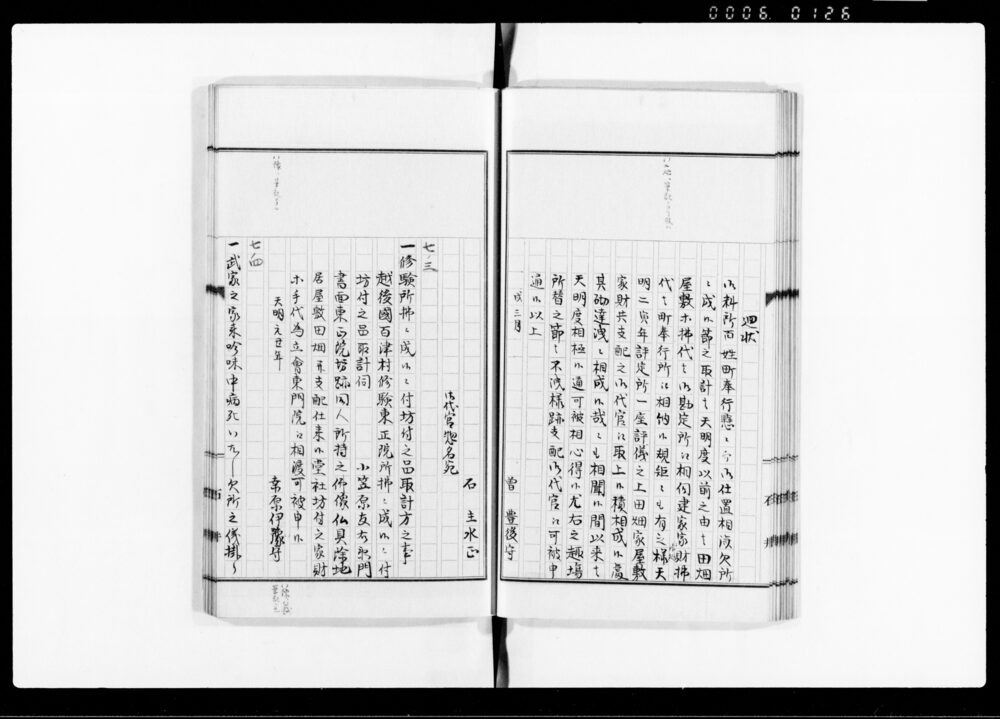 0006 0126
廻状
御料所百姓町奉行懸ニ而御仕置相成欠所
ニ成候節之取計者天明度以前之由者田畑
屋敷等払代者御勘定所江相伺建家家財払
代者町奉行所江相納候規矩ニも有之候様天
明二寅年評定所一座評儀之上田畑家屋敷
家財共支配之御代官江取上候積相成候處
其砌達洩ニ相成候哉ニも相聞候間以来者
天明度相極候通可被相心得候尤右之趣場
所替之節者不洩様跡支配御代官江可被申
通候以上
戌三月
曽豊後守
石主水正
御代官惣名宛
七三
一修験所払ニ成候ニ付坊付之品取計方之事
越後國百津村修験東正院所払ニ成候ニ付
坊付之品取計伺
小笠原友右衛門
書面東正院坊跡同人所持之佛像仏具除地
居屋敷田畑并支配仕来候堂社坊付之家財
等手代為立會東門院江相渡可被申候
天明元丑年
桑原伊豫守
七四
一武家之家来吟味中病死いたし欠所之儀掛り